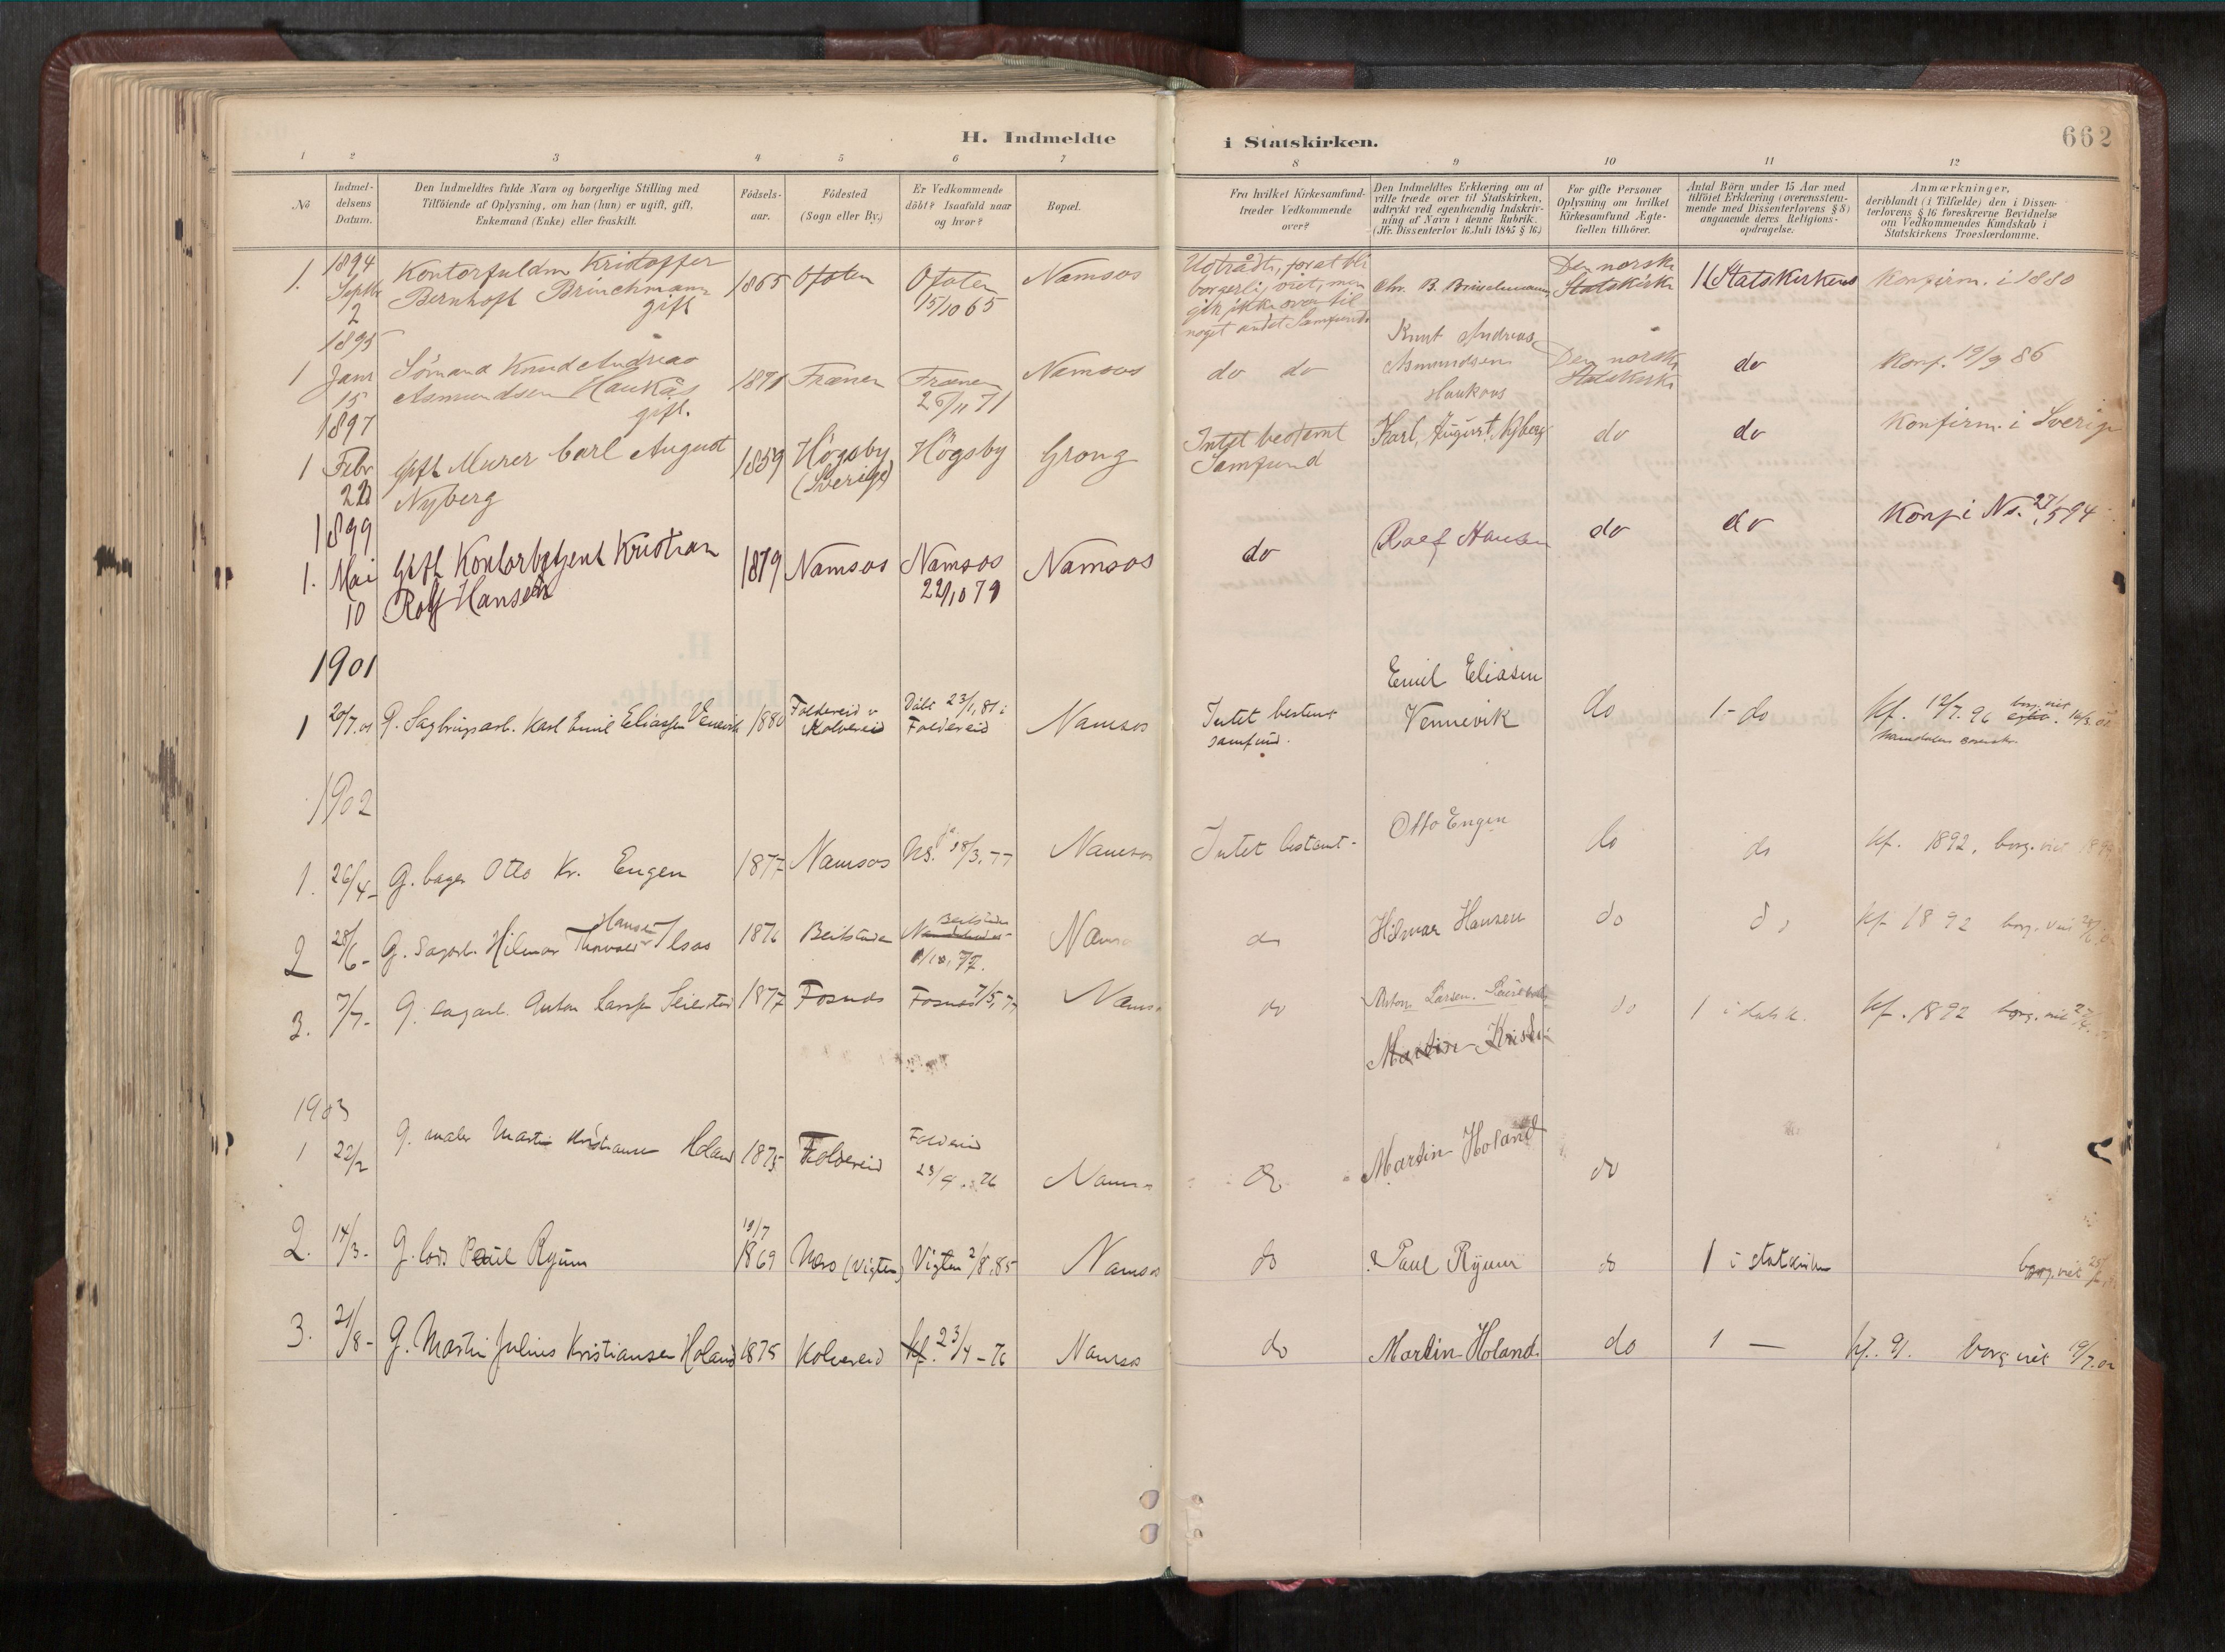 H. Indmeldte i Statskirken.
662
1 2 3 4 5 6 7 8 9 10 11 12
No
Indmeldelsens Datum.
Den Indmeldtes fulde Navn og borgerlige Stilling med
Tilföiende af Oplysning, om han (hun) er ugift, gift,
Enkemand (Enke) eller fraskilt.
Födselsaar.
Födested
(Sogn eller By.)
Er Vedkommende
döbt? Isaafald naar
og hvor?
Bopæl.
Fra hvilket Kirkesamfund-
træder Vedkommende
over?
Den Indmeldtes Erklæring om at
ville træde over til Statskirken,
udtrykt ved egenhændig Indskriv-
ning af Navn i denne Rubrik.
(Jfr. Dissenterlov 16 Juli 1845 § 16.)
For gifte Personer
Oplysning om hvilket
Kirkesamfund Ægte-
fællen tilhörer.
Antal Börn under 15 Aar med
tilföiet Erklæring (overensstem-
mende med Dissenterlovens § 8)
angaaende deres Religions-
opdragelse.
Anmærkninger,
deriblandt (i Tilfælde) den i Dissen-
terlovens § 16 foreskrevne Bevidnelse
om Vedkommendes Kundskab i
Statskirkens Troeslærdomme.
1894
1. Septb 2 Kontorfuldm Kristoffer
Bernhoft Brinchmann
gift
1865 Ofoten Ofoten
15/10 65
Namsos
Udtrådt, for at bli
borgerlig viet, men
gik ikke over til
noget andet Samfund
Chr. B. Brinchmann
Den norske
Statskirke
1 Statskirken
Konfirm. i 1880
1895
1 Janr 15 Sömand Knud Andreas
Asmundsen Haukås
gift.
1871 Frænen Frænen
26/11 71
Namsos
do do
Knut Andreas
Asmundsen
Haukaas
Den norske
Statskirke
do
Konf. 19/9 86
1897
1 Febr 22 Gift Murer Carl August
Nyberg
1859 Högsby
(Sverige)
Högsby Grong
Intet bestemt
Samfund
Karl August Nyberg
do do
Konfirm. i Sverige
1899
1. Mai 10 Gift Kontorbetjent Kristian
Rolf Hansen
1879 Namsos Namsos
22/10 79
Namsos
do
Rolf Hansen
do do
Konf i Ns. 27/5 94
1901
1 20/7.01 G. Sagbrugsarb. Karl Emil Eliassen Vennevik 1880
Foldereid
Kolvereid
Döbt 23/1.81 i
Foldereid
Namsos
Intet bestemt
samfund.
Emil Eliasen
Vennevik
do 1 - do
kf. 12/7.96
1902
1. 26/4 - G. bager Otto Kr. Engen 1877 Namsos Ns. 18/3.77 Namsos
Intet bestemt - Otto Engen do do kf. 1892. borg. viet
2 28/6 - G. Sagarb. Hilmar Thorvald Hansen 1876 Beitstaden Beitstaden
Namsos
do Hilmar Hansen do do kf. 1892 borg. viet
3. 7/7 - G. sagarb. Anton Larsen 1877 Fosnæs Fosnæs 7/5.77 Namsos
do Anton Larsen do 1 kf. 1892 borg. viet
Martin Kristi
1903
1 22/2 G. maler Martin Kristiansen Holand 1875 Kolvereid
Foldereid
23/4 . 76
Namsos
do Martin Holand do
2. 14/3 - G. lods Paul Ryum
19/7
1869 Nærø (Vigten) Vigten 2/8.85 Namsos
do Paul Ryum do 1 i statskirken borg. viet
3. 21/8 - G. Martin Julius Kristiansen Holand 1875 Kolvereid kf. 23/4 - 76 Namsos
do Martin Holand. do 1 — kf. 91. borg viet